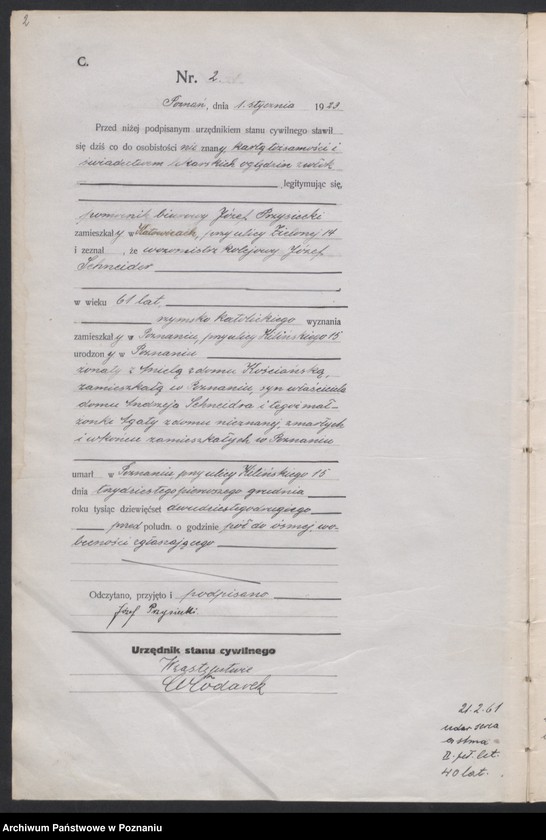 2
C.
Nr. 2
Poznań, dnia 1. stycznia 1923
Przed niżej podpisanym urzędnikiem stanu cywilnego stawił
się dziś co do osobistości nie znany kartą tożsamości i
świadectwem lekarskich oględzin zwłok
legitymując się,
pomocnik biurowy Józef Przysiecki
zamieszkały w Katowicach, przy ulicy Zielonej 14
i zeznał, że wozomistrz kolejowy Józef
Schneider
w wieku 61 lat,
rzymsko katolickiego wyznania
zamieszkały w Poznaniu, przy ulicy Kilińskiego 15
urodzony w Poznaniu
żonaty z Anielą z domu Kościańską,
zamieszkałą w Poznaniu, syn właściciela
domu Andrzeja Schneidra i tegoż mał-
żonki Agaty z domu nieznanej zmarłych
i w końcu zamieszkałych w Poznaniu
umarł w Poznaniu, przy ulicy Kilińskiego 15
dnia trzydziestego pierwszego grudnia
roku tysiąc dziewięćset dwudziestego drugiego
przed połudn. o godzinie pół do ósmej, wo-
becności zgłaszającego
Odczytano, przyjęto i podpisano
Józef Przysiecki
Urzędnik stanu cywilnego
W zastępstwie
Włodarek
21.2.61
udar serca
astma
40 lat.
Archiwum Państwowe w Poznaniu